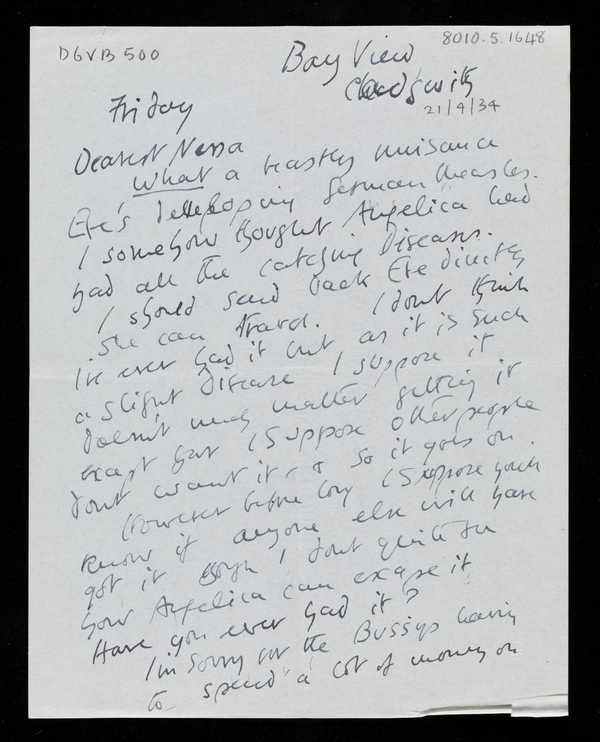 DGVB 500
8010.5.1648
Bay View
Cadgwith
21/4/34
Friday
Dearest Nessa
What a beastly nuisance
Eve's developing German measles.
I somehow thought Angelica had
had all the catching diseases.
I should send back Eve directly
she can travel. I dont think
I've ever had it but as it is such
a slight disease I suppose it
doesn't much matter getting it
except that I suppose other people
dont want it & so it goes on.
However before long I suppose you'll
know if anyone else will have
got it though I dont quite see
how Angelica can escape it
Have you ever had it?
I'm sorry for the Bussys having
to spend a lot of money on